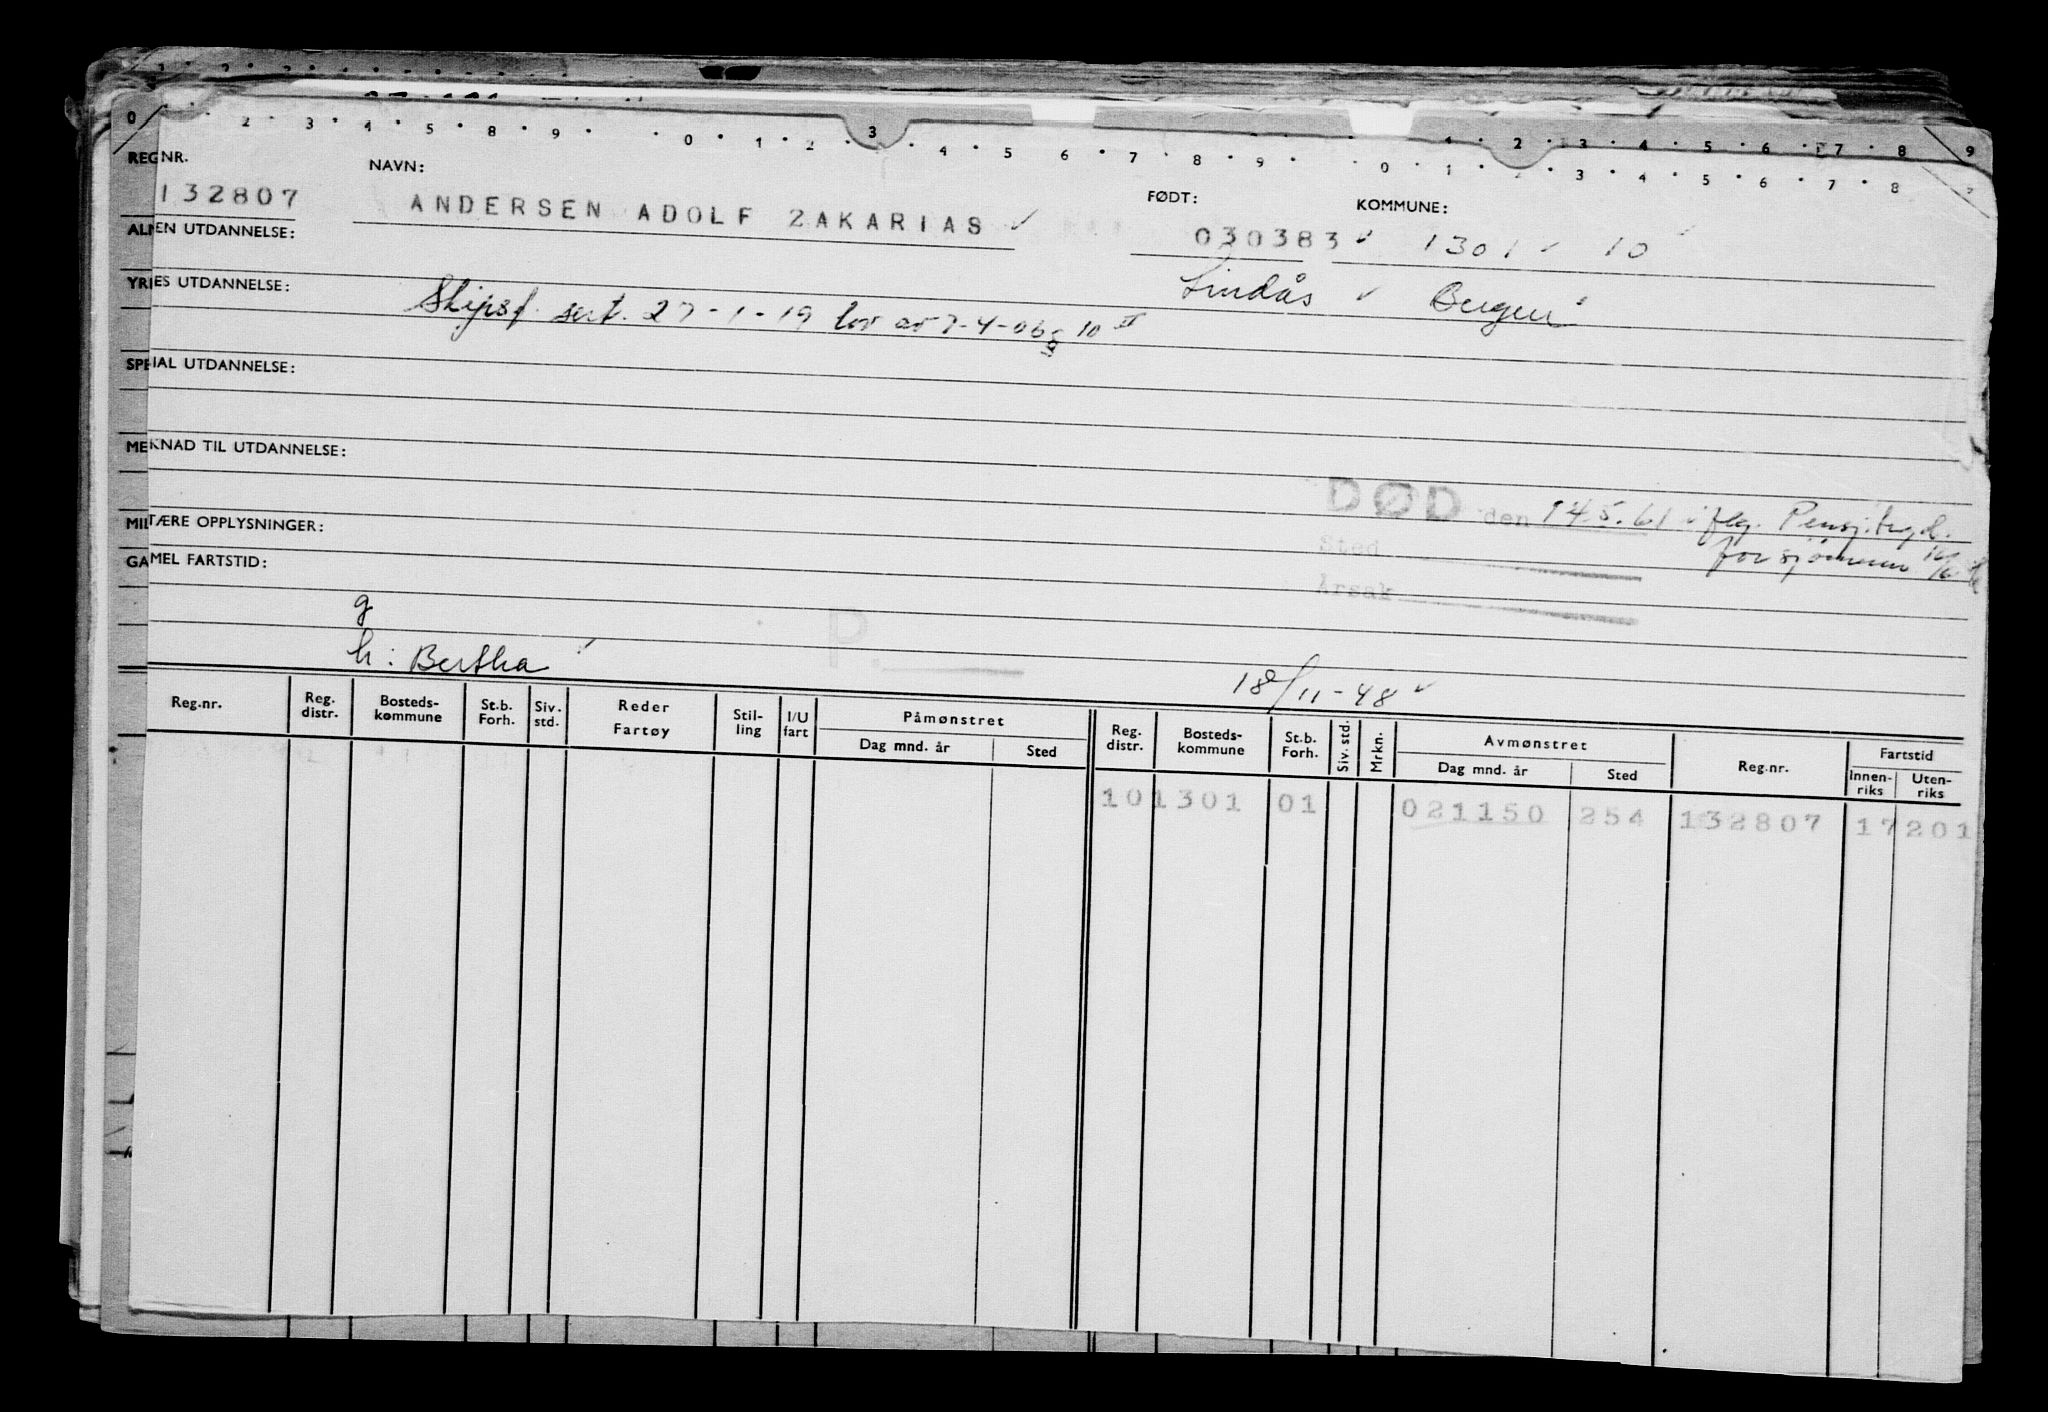 0 · 2 · 3 · 4 · 5 · 8 · 9 · · 0 · 1 · 2 · 3 · 4 · 5 · 6 · 7 · 8 · 9 · · 0 · 1 · 2 · 3 · 4 · 5 · 6 · 7 · 8 · 9
REGNR. NAVN: FØDT: KOMMUNE:
132807 ANDERSEN ADOLF ZAKARIAS ✓ 030383 ✓ 1301 ✓ 10 ✓
ALMEN UTDANNELSE: Lindås ✓ Bergen
YRKES UTDANNELSE: Skipsf. sert. 27-1-19 lov av 7-4-06 § 10 II
SPESIAL UTDANNELSE:
MERKNAD TIL UTDANNELSE:
DØD den 14.5.61 iflg. Pensj.tryd.
MILITÆRE OPPLYSNINGER: Sted for sjømenn
GAMMEL FARTSTID: Årsak
g P.
h: Bertha ✓ 18/11-48 ✓
Reg.nr. Reg. distr. Bosteds-kommune St.b. Forh. Siv. std. Reder Fartøy Stil-ling I/U fart Påmønstret Reg. distr. Bosteds-kommune St.b. Forh. Siv. std. Mrkn. Avmønstret Reg.nr. Fartstid
Dag mnd. år Sted Dag mnd. år Sted Innen-riks Uten-riks
10 1301 01 021150 254 132807 17 201